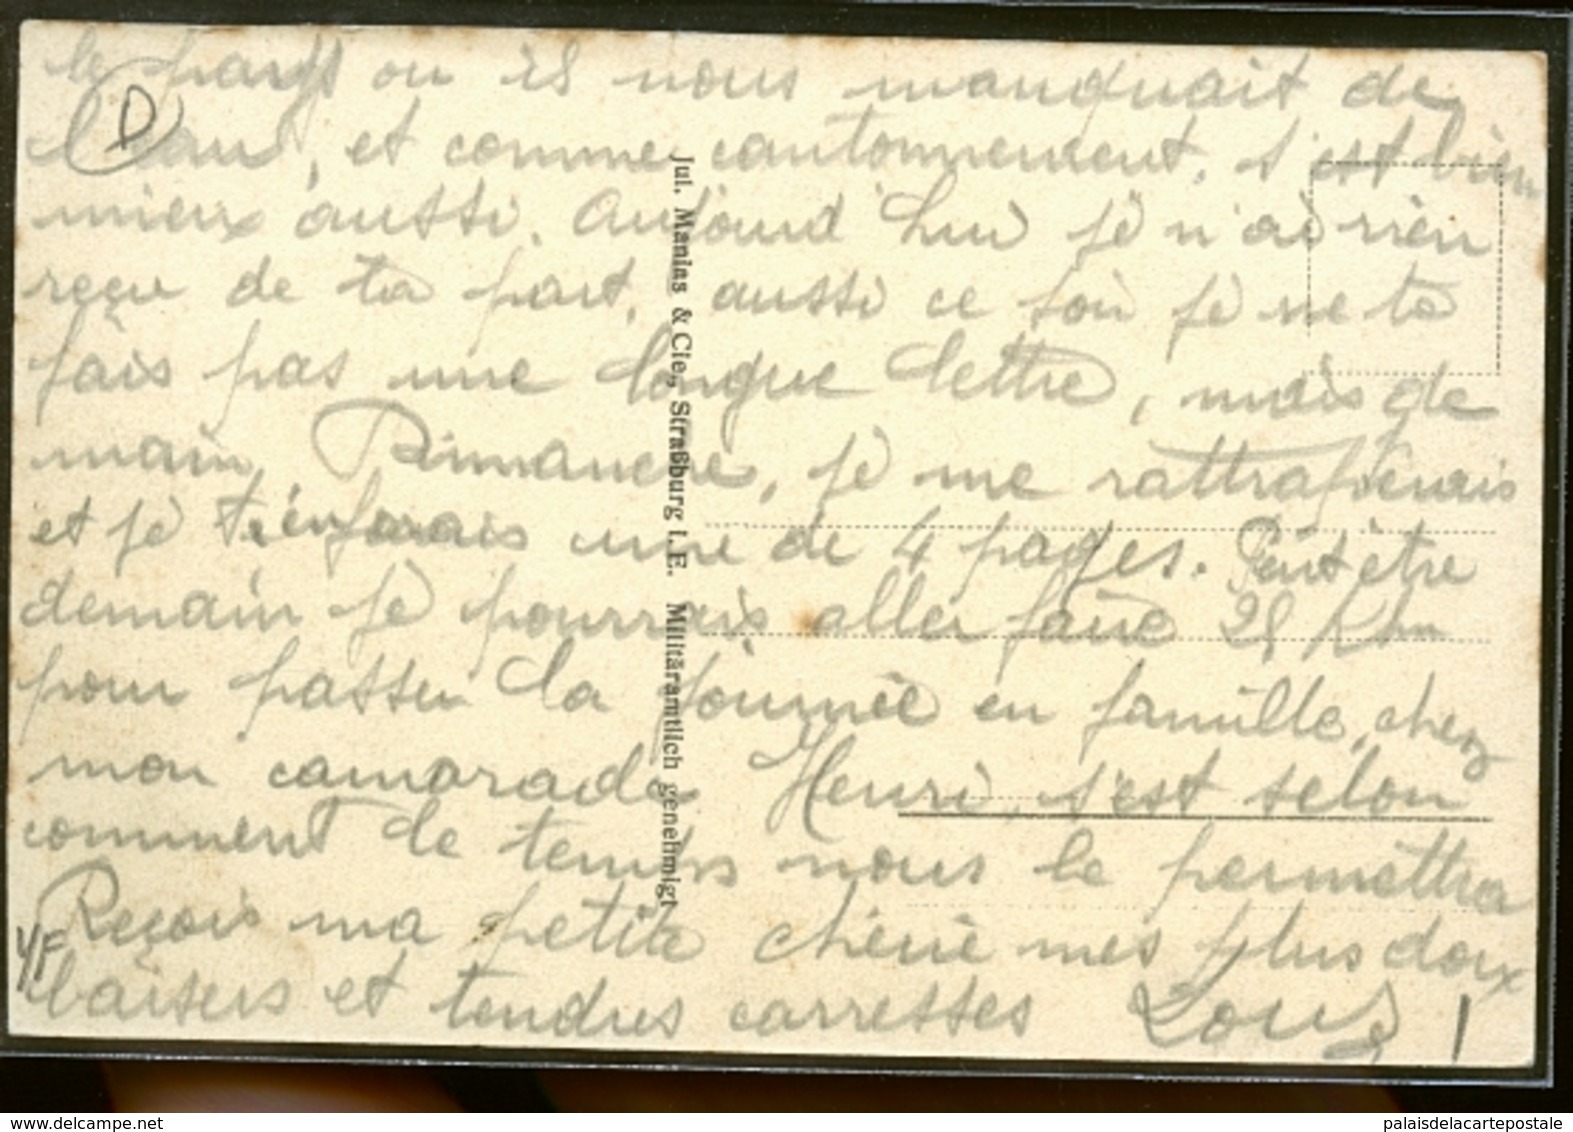 le pays ou il nous manquait de
l'eau, et comme cantonnement, s'est bien
mieux aussi. Aujourd'hui je n'ai rien
reçu de ta part, aussi ce soir je ne te
fais pas une longue lettre, mais de
main Dimanche, je me rattraperais
et je t'en ferais une de 4 pages. Peut être
demain je pourrais aller faire 25 Km
pour passer la journée en famille, chez
mon camarade Henri, s'est selon
comment le temps nous le permettra
Reçois ma petite chérie mes plus doux
baisers et tendres carresses Louis
D
Jul. Manias & Cie., Straßburg i. E. Militäramtlich genehmigt
1
delcampe.net
palaisdelacartepostale